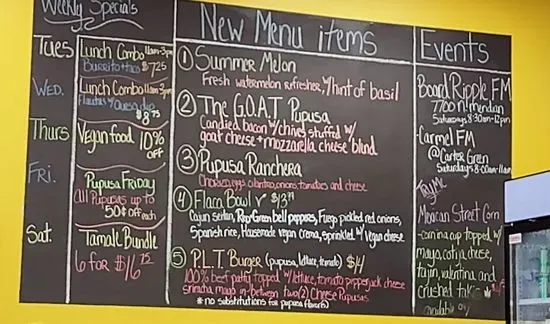 Weekly Specials
Tues
Lunch Combo 11am-3pm
Burrito + $7.25
Wed.
Lunch Combo 11am-3pm
Flautas w/ queso dip
$8.75
Thurs
Vegan food 10%
OFF
Fri.
Pupusa Friday
all Pupusas up to
50¢ off each
Sat.
Tamale Bundle
6 for $16.75
New Menu items
① Summer Melon
Fresh watermelon refresher, w/ hint of basil
② The G.O.A.T. Pupusa
Candied bacon w/ chives stuffed w/
goat cheese + mozzarella cheese blend
③ Pupusa Ranchera
Chorizo, eggs, cilantro, onions, tomatoes and cheese
④ Flaca Bowl V $13.79
Cajun seitan, Red + Green bell peppers, Fuego pickled red onions,
Spanish rice, Housemade vegan crema, sprinkled w/ Vegan cheese
⑤ P.L.T. Burger (pupusa, lettuce, tomato) $14
100% beef patty topped w/ lettuce, tomato, pepperjack cheese
sriracha mayo in-between two (2) Cheese Pupusas
* no substitutions for pupusa flavor(s)
Events
Board Ripple FM
7700 n. meridian
Saturdays 8:30am-12pm
-Carmel FM
@ Carter Green
Saturdays 8:00am-11am
Try Me
Mexican Street Corn
-corn in a cup topped w/
mayo, cotija cheese,
tajin, valentina and
crushed takis
available w/